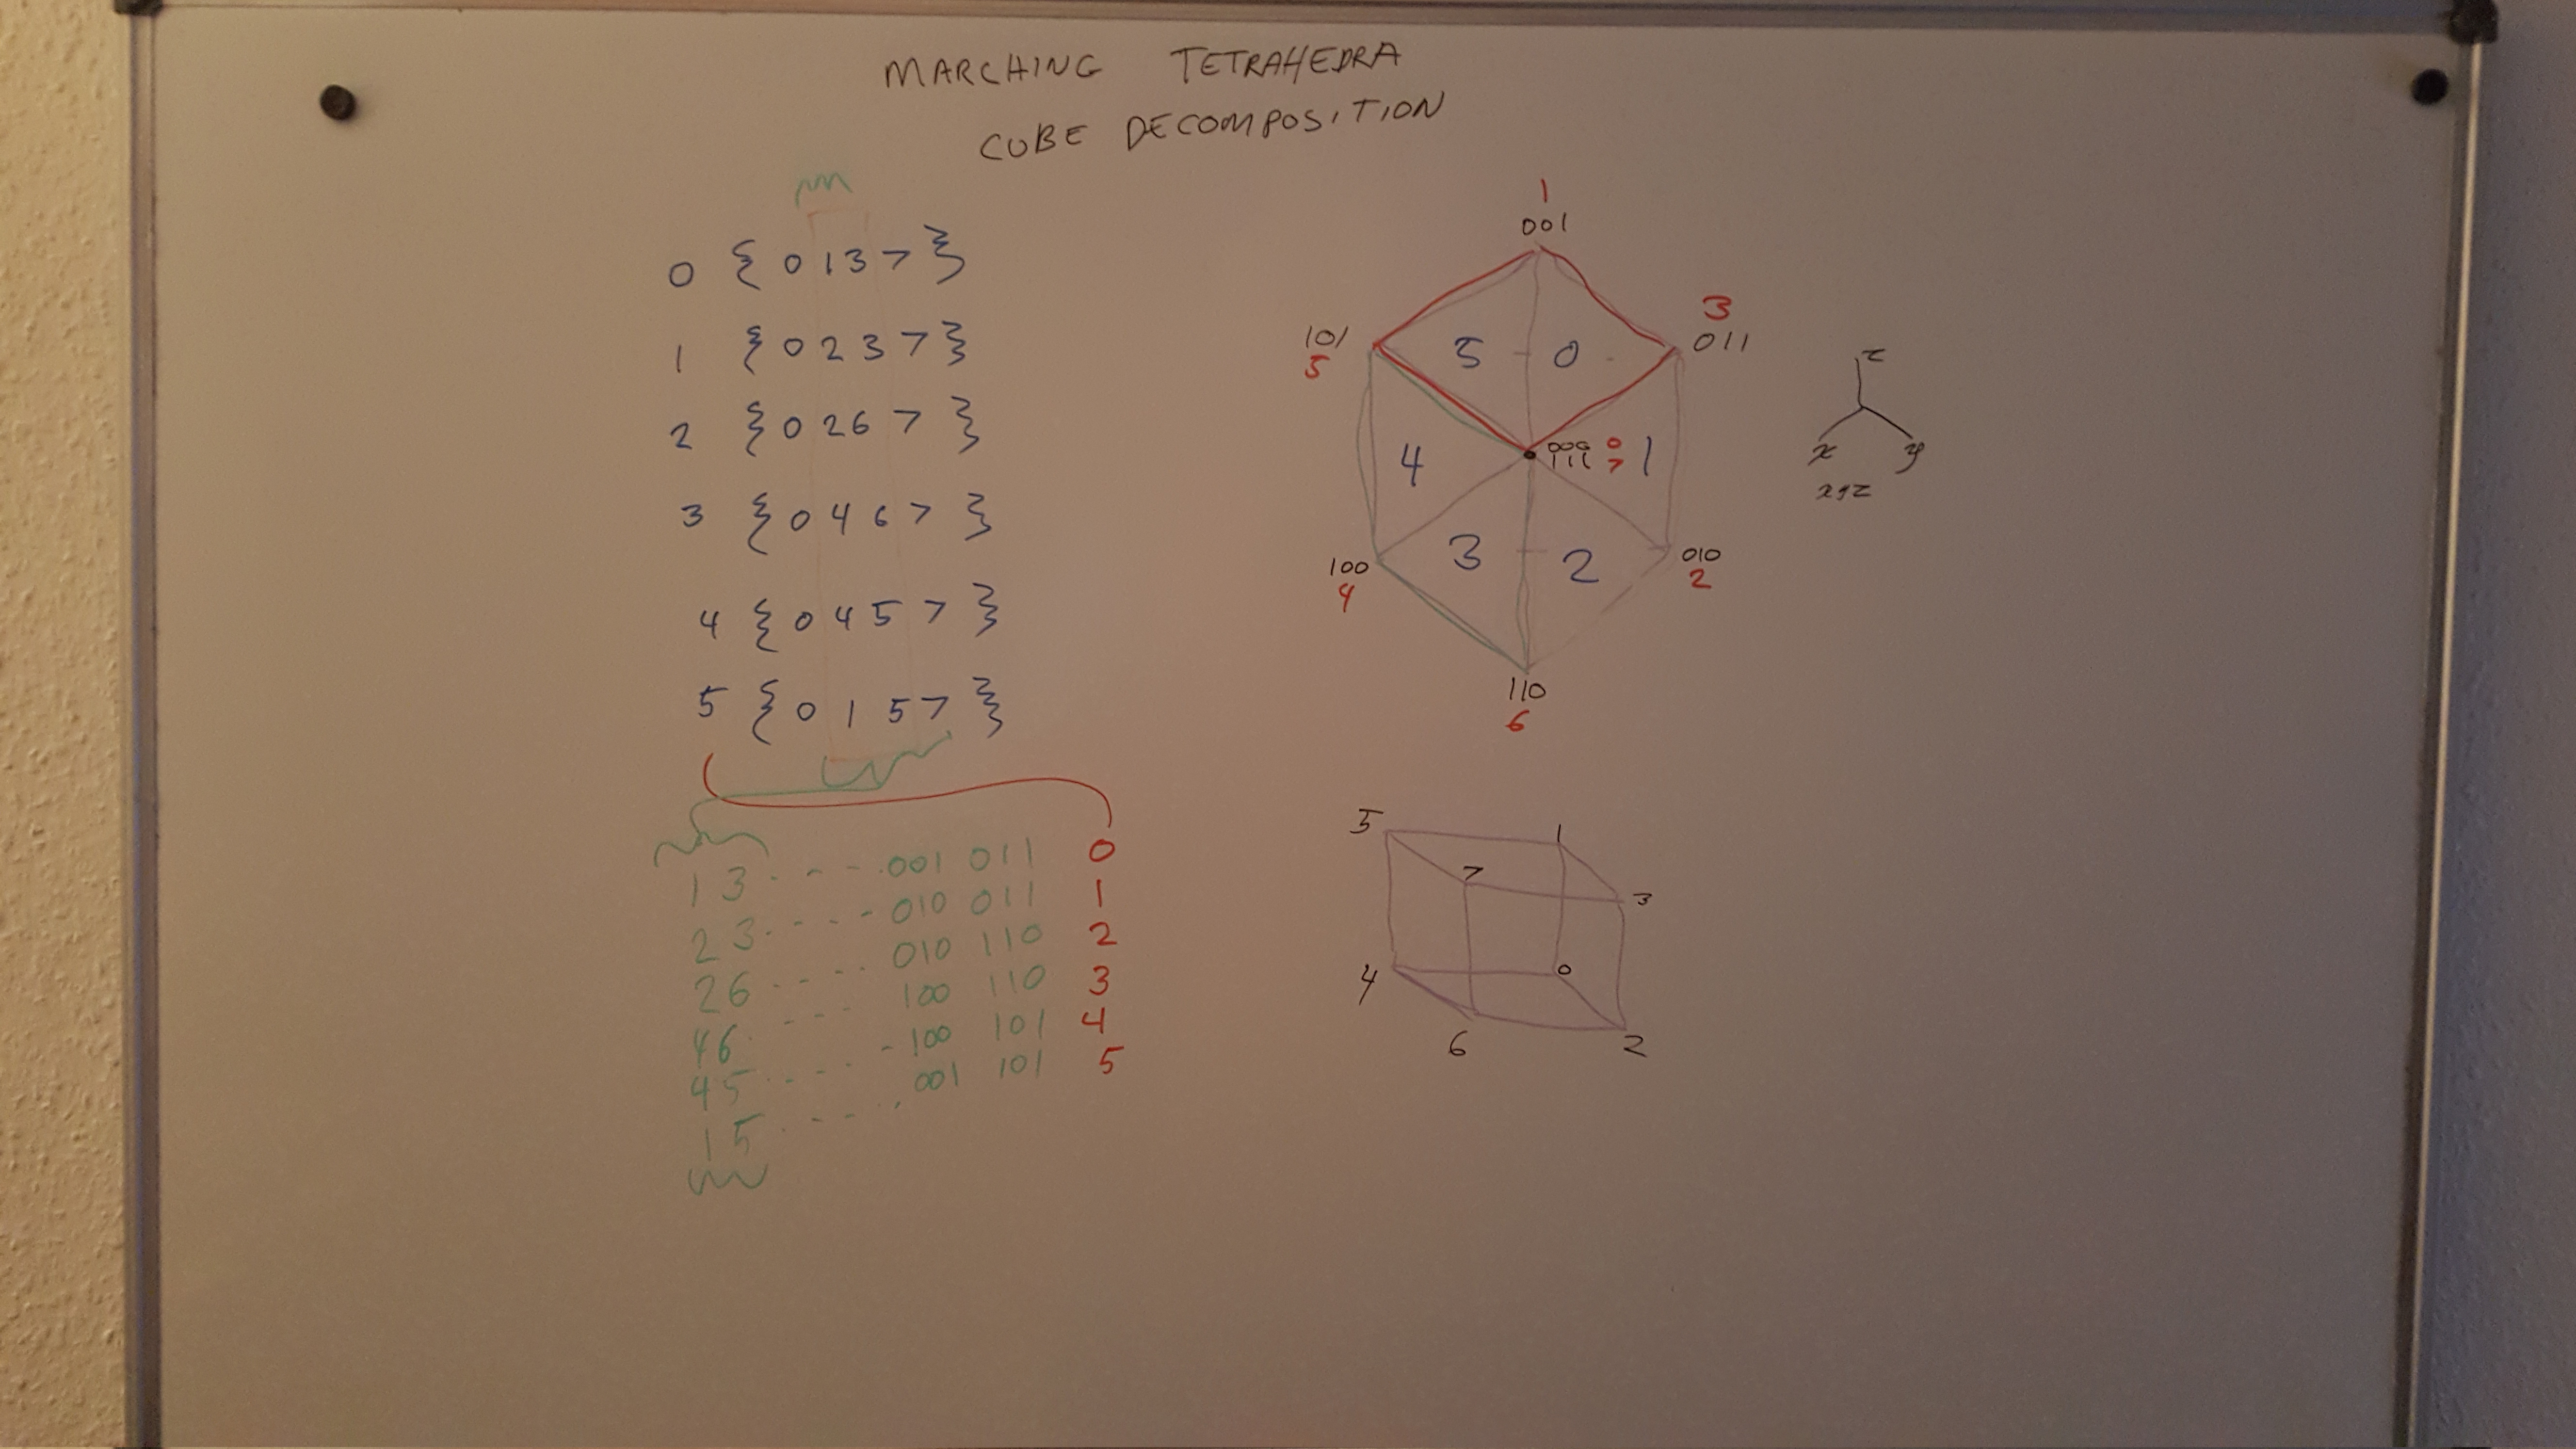 MARCHING TETRAHEDRA
CUBE DECOMPOSITION
0 { 0 1 3 7 }
1 { 0 2 3 7 }
2 { 0 2 6 7 }
3 { 0 4 6 7 }
4 { 0 4 5 7 }
5 { 0 1 5 7 }
1 3 . - - - . 001 011 0
2 3 . - - - 010 011 1
2 6 . - - - . 010 110 2
4 6 . - - - 100 110 3
4 5 . - - . - 100 101 4
1 5 . - - . 001 101 5
1
001
3
011
101
5
5
0
000 0
111 7
4
1
3
2
100
4
010
2
110
6
z
x
y
xyz
5
1
7
3
4
0
6
2